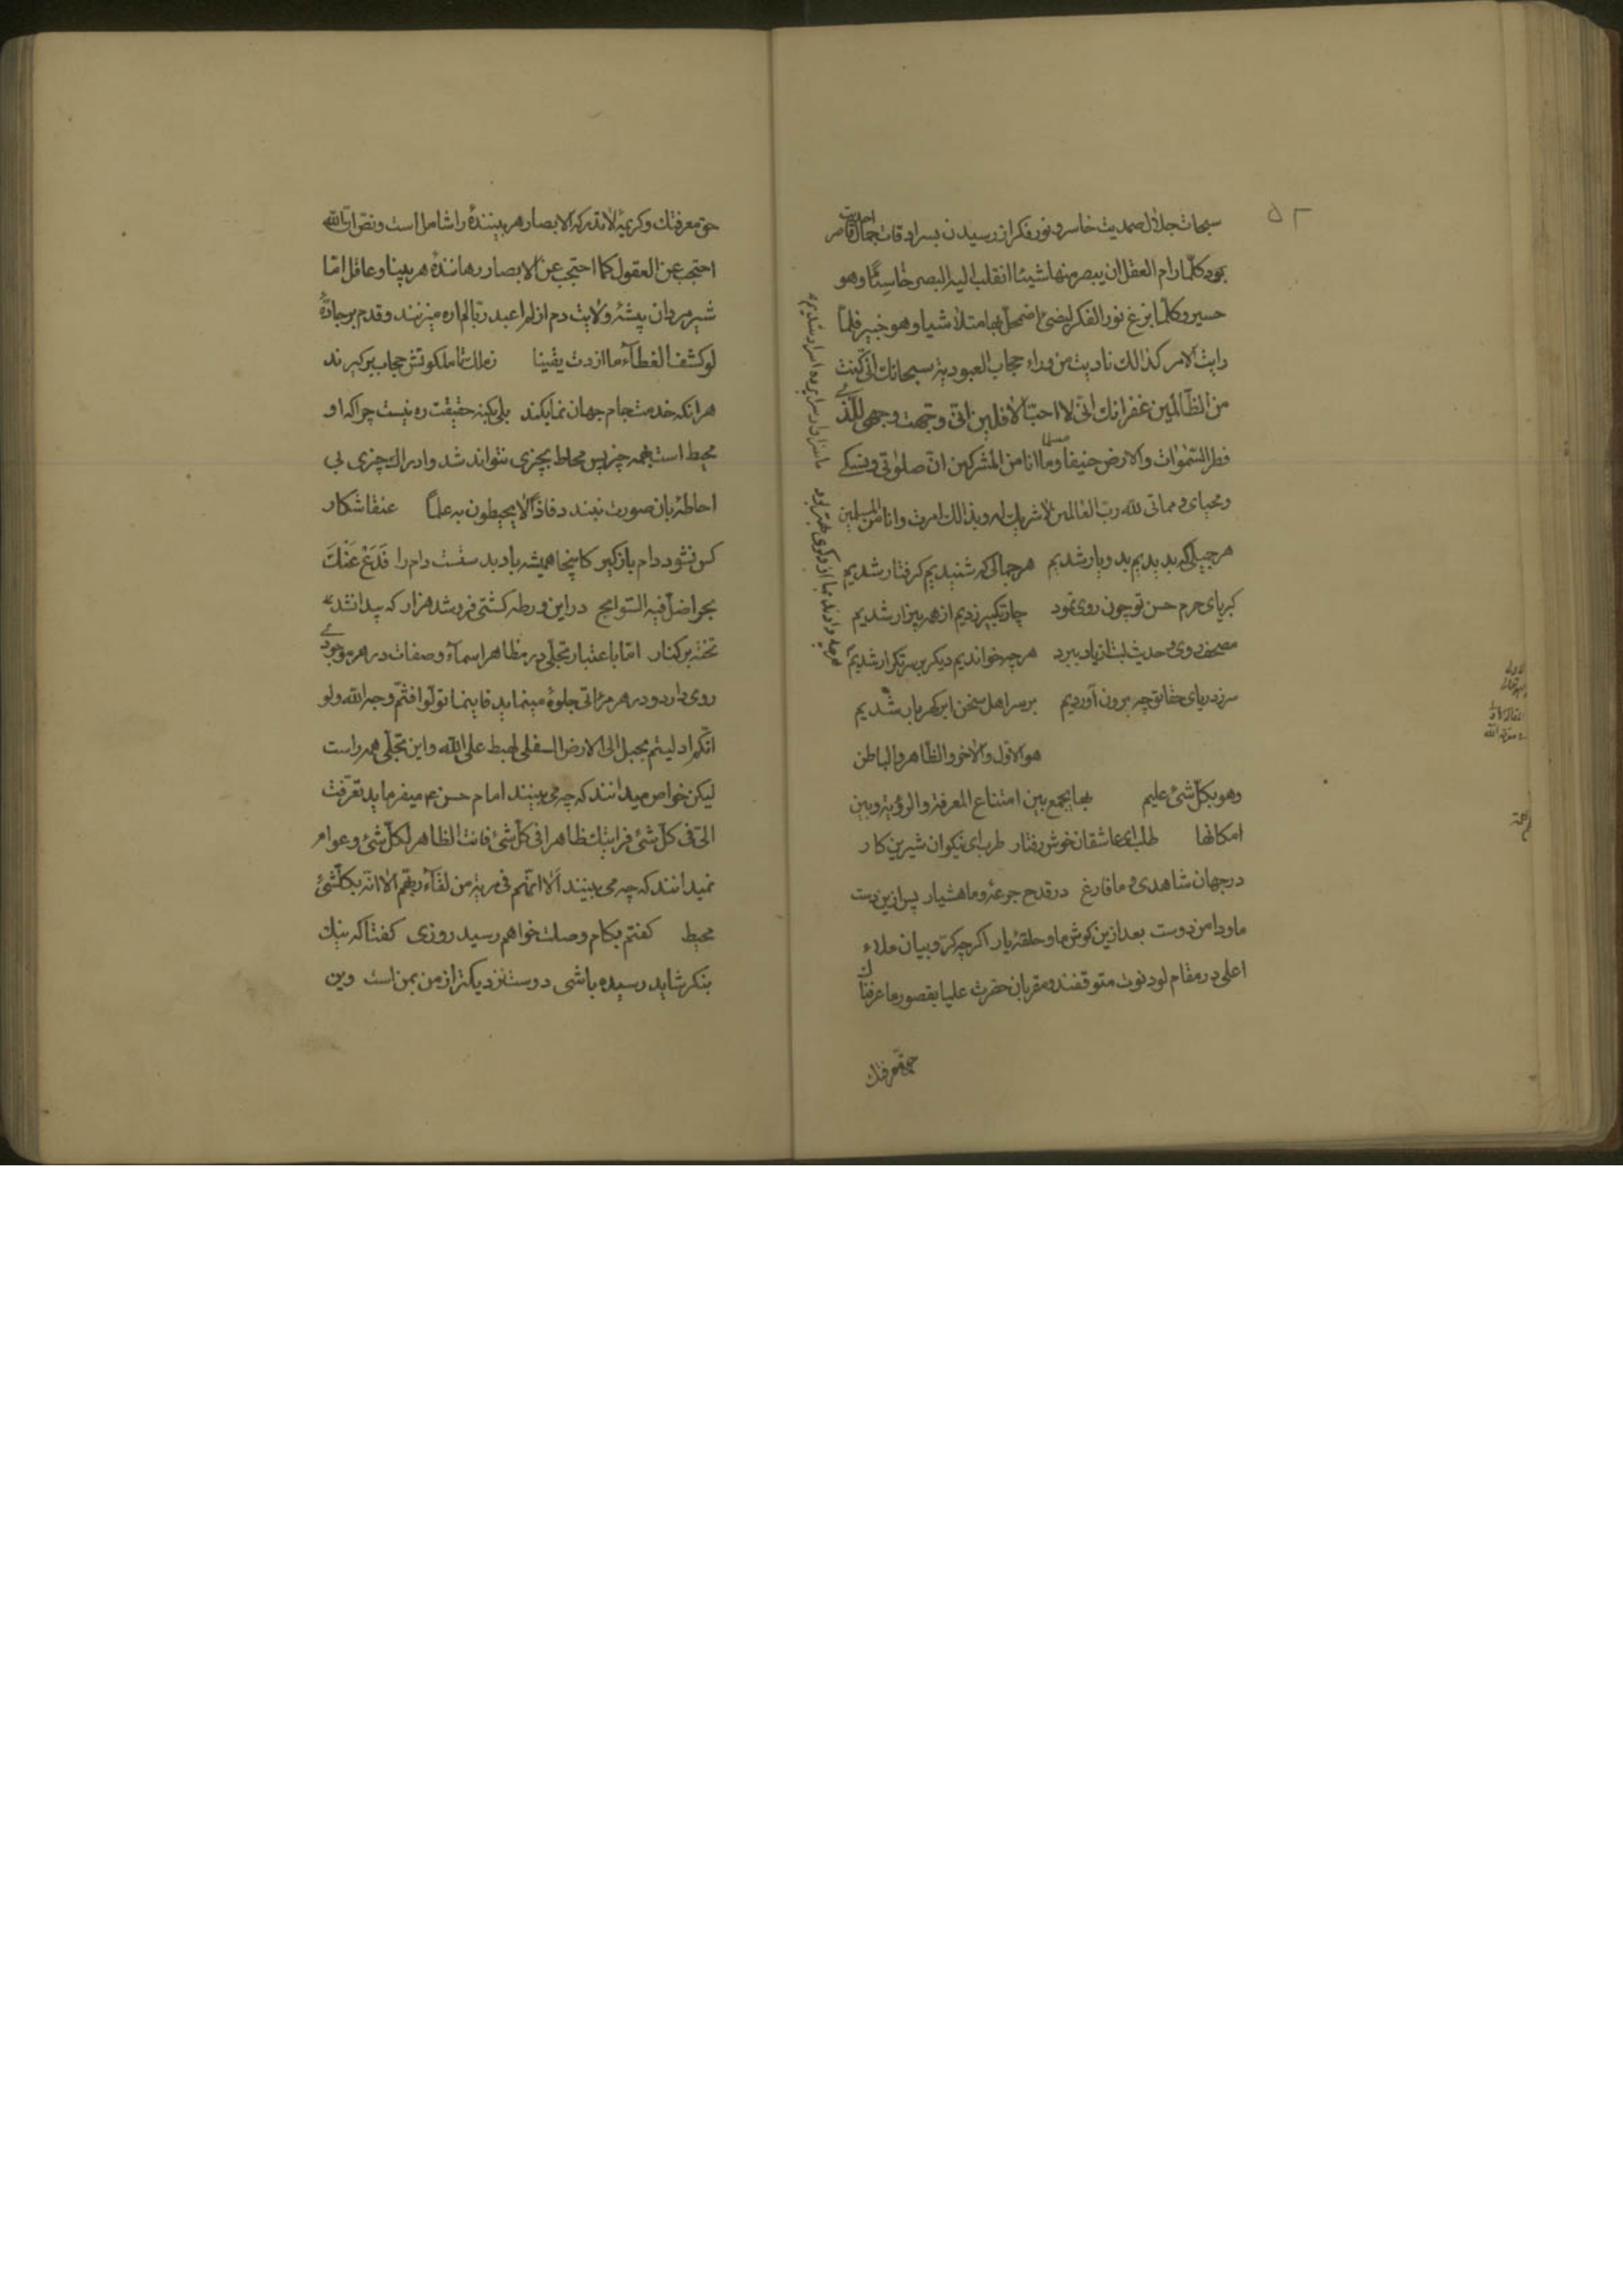 ۵۲
سبحات جلال صمدیت خاسر و نور فکر از رسیدن بسرادقات جمال احدیت قاصر
بود کلما رام العقل ان یبصر منها شیئا انقلب الیه البصر خاسئا و هو
حسیر و کلما بزغ نور الفکر لیضئ اضمحل بها متلاشیا و هو خبیر فلما
رایت الامر کذالک نادیت من وراء حجاب العبودیة سبحانک انی کنت
من الظالمین غفرانک انی لا احب الافلین انی وجهت وجهی للذی
فطر السموات والارض حنیفا مسلما وما انا من المشرکین ان صلوتی و نسکی
و محیای و مماتی لله رب العالمین لا شریک له و بذالک امرت و انا من المسلمین
هر جمیلی که بدیدیم بدو یار شدیم هر جمالی که شنیدیم گرفتار شدیم
کبریای حرم حسن تو چون روی نمود چار تکبیر زدیم از همه بیزار شدیم
مصحف روی و حدیث لبت از یاد ببرد هر چه خواندیم دیکر بر سر تکرار شدیم
سر ز دریای حقایق چه برون آوردیم بر سر اهل سخن ابر کهربار شدیم
هو الاول والاخر والظاهر والباطن
وهو بکل شئ علیم بها یجمع بین امتناع المعرفة والرؤیة و بین
امکانها طلب ای عاشقان خوش رفتار طرب ای نیکوان شیرین کار
در جهان شاهدی و ما فارغ در قدح جرعه و ما هشیار پس ازین دست
ما و دامن دوست بعد ازین کوش ما و حلقه یار اکر چه کروبیان ملاء
اعلی در مقام لو دنوت متوقفند و مقربان حضرت علیا بقصور ما عرفناک
حق معرفتک
حق معرفتک و کریمه لا تدرکه الابصار هر بیننده را شامل است و نص ان الله
احتجب عن العقول کما احتجب عن الابصار رهاننده هر بینا و عاقل اما
شیر مردان بیشه ولایت دم از لم اعبد ربا لم اره میزنند و قدم بر جاده
لو کشف الغطآء ما ازددت یقینا ز ملک تا ملکوتش حجاب برکیرند
هر انکه خدمت جام جهان نما بکند بلی بکنه حقیقت ره نیست چرا که او
محیط است بهمه چیز پس محاط بچیزی نتواند شد و ادراک چیزی بی
احاطه بان صورت نبندد فاذا لا یحیطون به علما عنقا شکار
کس نشود دام باز کیر کاینجا همیشه باد بدست است دام را فدع عنک
بحرا ضل فیه السوابح در این ورطه کشتی فرو شد هزار که پیدا نشد
تخته بر کنار اما باعتبار تجلی در مظاهر اسمآء و صفات در هر موجودی
روی دارد و در هر مرآتی جلوه مینماید فاینما تولوا فثم وجه الله ولو
انکم ادلیتم بحبل الی الارض السفلی لهبط علی الله و این تجلی همه راست
لیکن خواص میدانند که چه می بینند امام حسین ع میفرماید تعرفت
الی فی کل شئ فرایتک ظاهرا فی کل شئ فانت الظاهر لکل شئ و عوام
نمیدانند که چه می بینند الا انهم فی مریة من لقآء ربهم الا انه بکل شئ
محیط کفتم بکام وصلت خواهم رسید روزی کفتا که نیک
بنکر شاید رسیده باشی دوست نزدیکتر از من بمن است وین